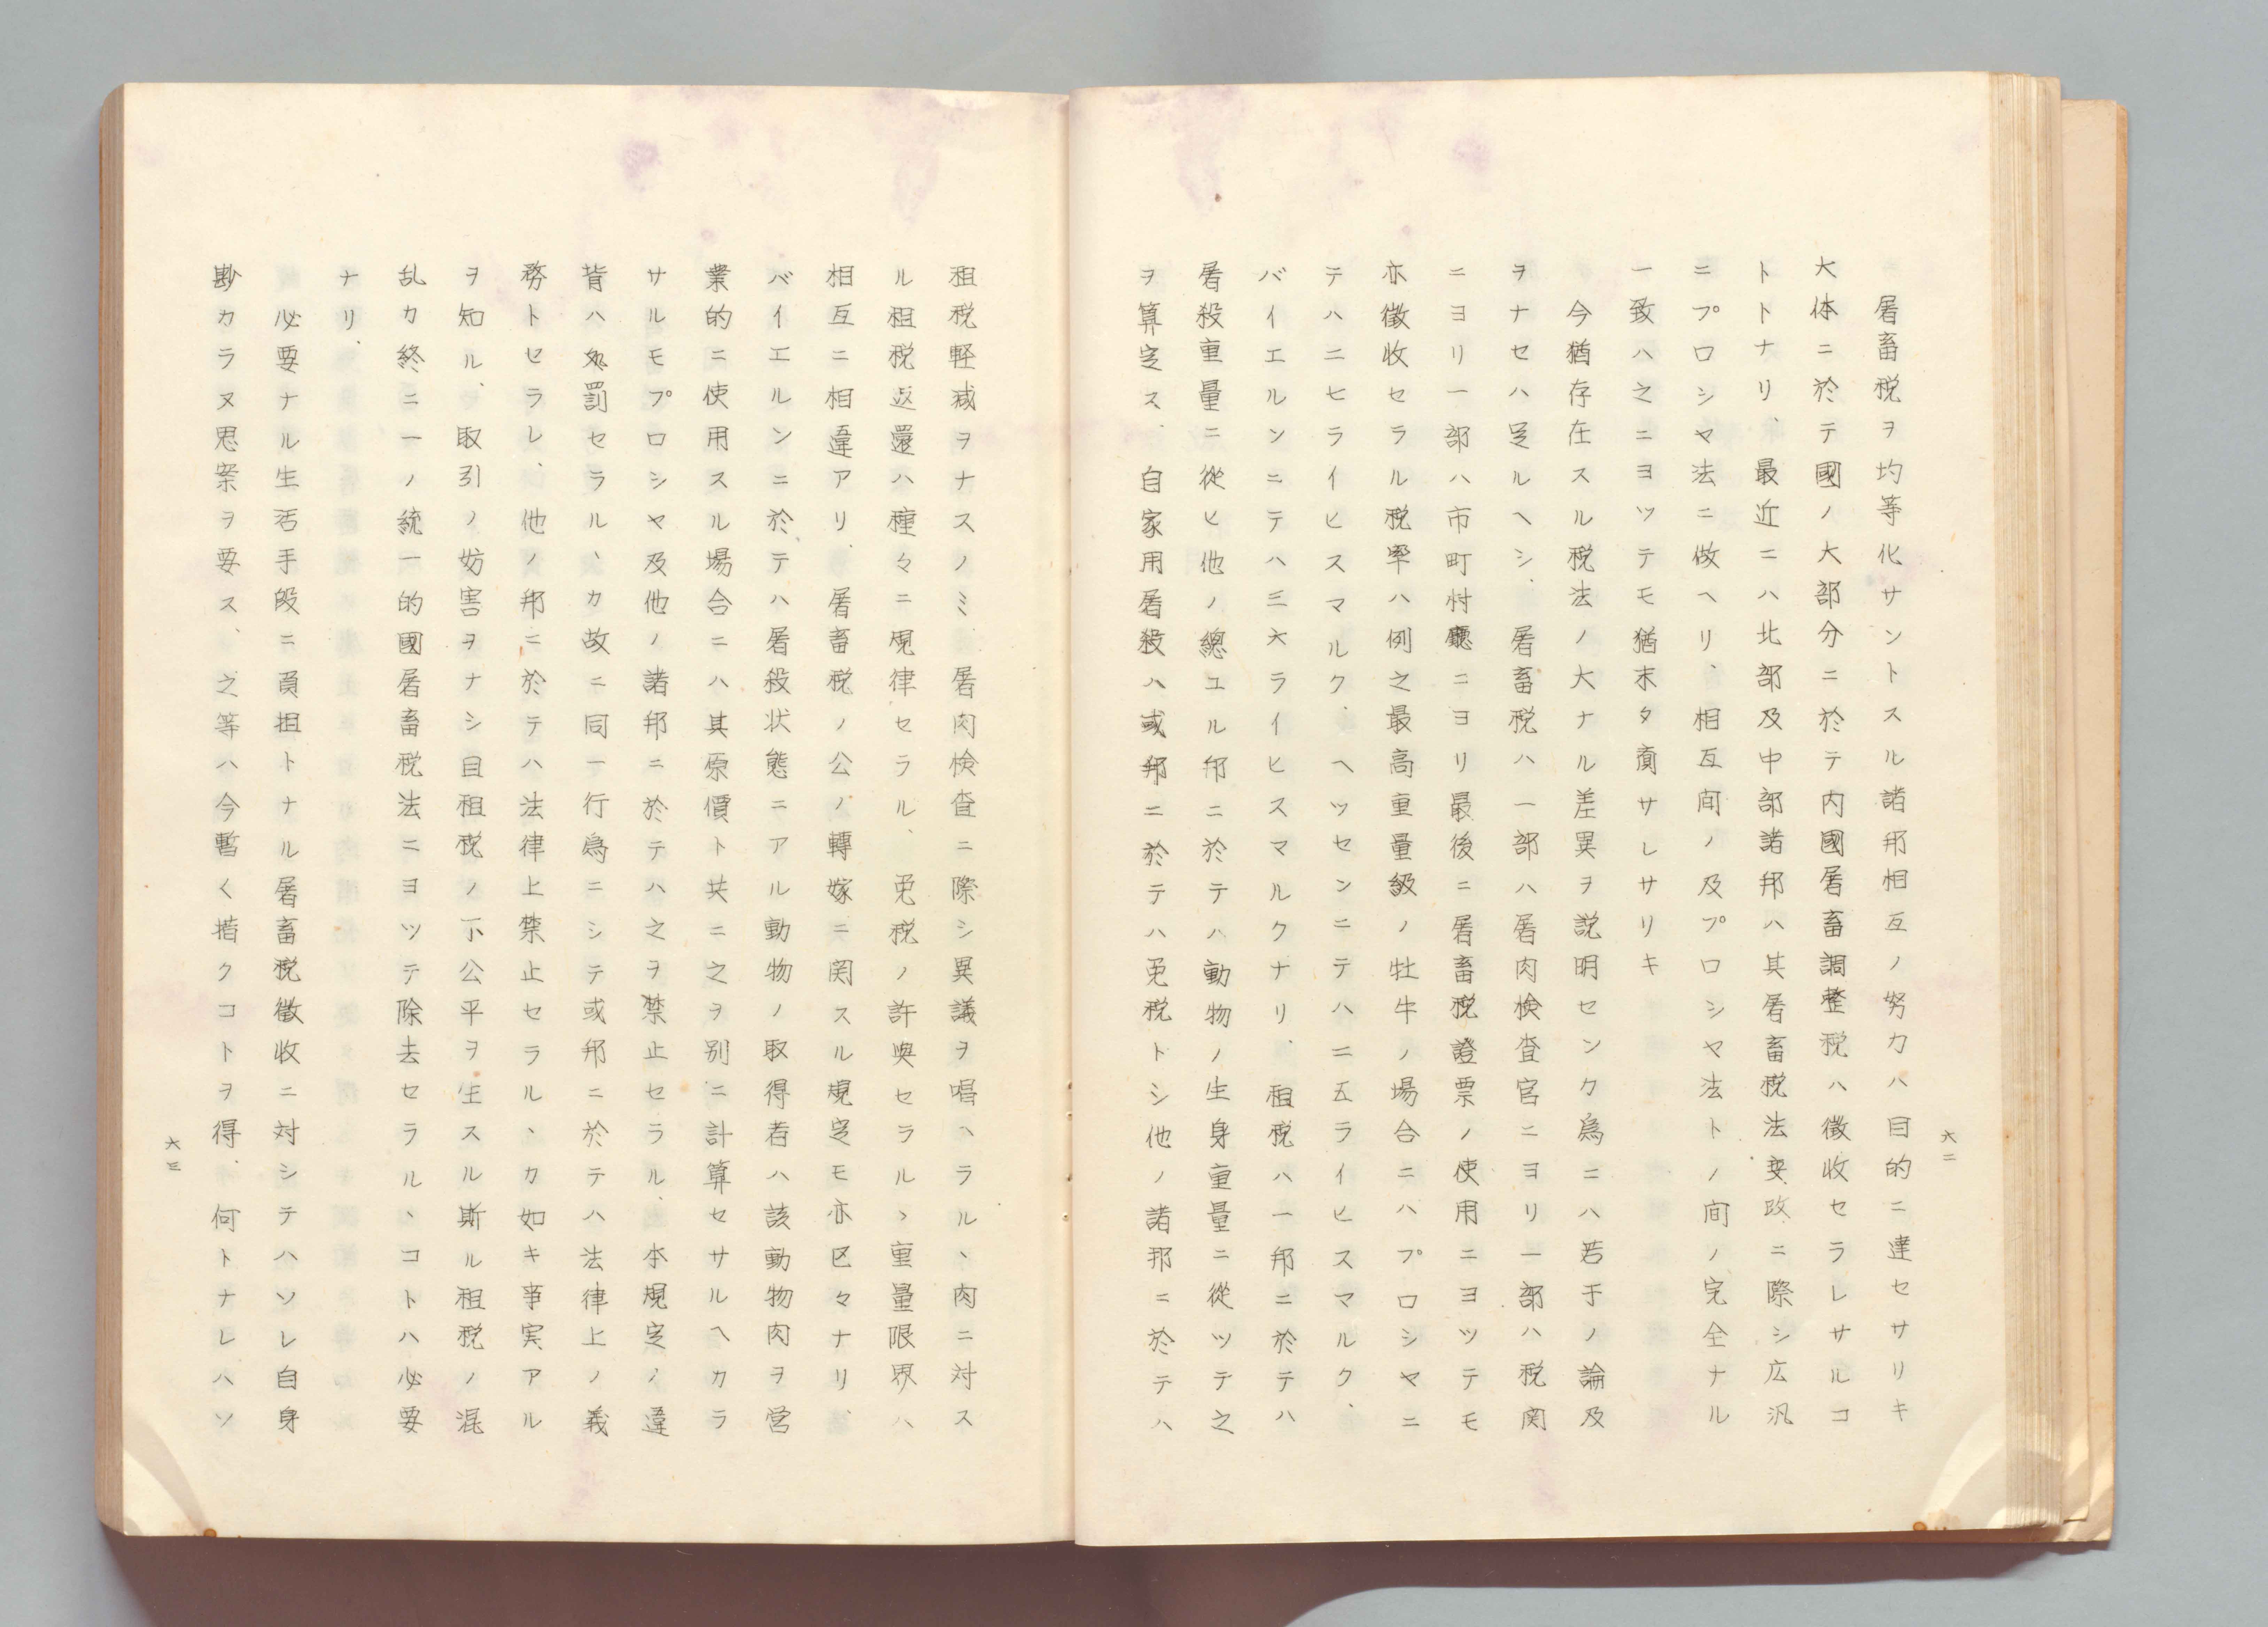 屠畜税ヲ均等化サントスル諸邦相互ノ努力ハ目的ニ達セサリキ
大体ニ於テ國ノ大部分ニ於テ内國屠畜調整税ハ徴收セラレサルコ
トトナリ、最近ニハ北部及中部諸邦ハ其屠畜税法変改ニ際シ広汎
ニプロシヤ法ニ倣ヘリ、相互间ノ及プロシヤ法トノ间ノ完全ナル
一致ハ之ニヨツテモ猶未タ齎サレサリキ
今猶存在スル税法ノ大ナル差異ヲ説明センカ為ニハ若干ノ論及
ヲナセハ足ルヘシ、屠畜税ハ一部ハ屠肉検査官ニヨリ一部ハ税関
ニヨリ一部ハ市町村廳ニヨリ最後ニ屠畜税證票ノ使用ニヨツテモ
亦徴收セラル税率ハ例之最高重量級ノ牡牛ノ場合ニハプロシヤニ
テハ二七ライヒスマルク、ヘッセンニテハ二五ライヒスマルク、
バイエルンニテハ三六ライヒスマルクナリ、租税ハ一邦ニ於テハ
屠殺重量ニ從ヒ他ノ總ユル邦ニ於テハ動物ノ生身重量ニ從ツテ之
ヲ算定ス、自家用屠殺ハ或邦ニ於テハ免税トシ他ノ諸邦ニ於テハ
六二
租税軽減ヲナスノミ、屠肉検査ニ際シ異議ヲ唱ヘラル丶肉ニ対ス
ル租税返還ハ種々ニ規律セラル、免税ノ許與セラル丶重量限界ハ
相互ニ相違アリ、屠畜税ノ公ノ轉嫁ニ関スル規定モ亦区々ナリ、
バイエルンニ於テハ屠殺状態ニアル動物ノ取得者ハ該動物肉ヲ営
業的ニ使用スル場合ニハ其原價ト共ニ之ヲ別ニ計算セサルヘカラ
サルモプロシヤ及他ノ諸邦ニ於テハ之ヲ禁止セラル、本規定ノ違
背ハ処罰セラル丶カ故ニ同一行為ニシテ或邦ニ於テハ法律上ノ義
務トセラレ、他ノ邦ニ於テハ法律上禁止セラル丶カ如キ事実アル
ヲ知ル、取引ノ妨害ヲナシ且租税ノ不公平ヲ生スル斯ル租税ノ混
乱カ終ニ一ノ統一的國屠畜税法ニヨツテ除去セラル丶コトハ必要
ナリ、
必要ナル生活手段ニ負担トナル屠畜税徴收ニ対シテハソレ自身
尠カラヌ思案ヲ要ス、之等ハ今暫く措クコトヲ得、何トナレハソ
六三